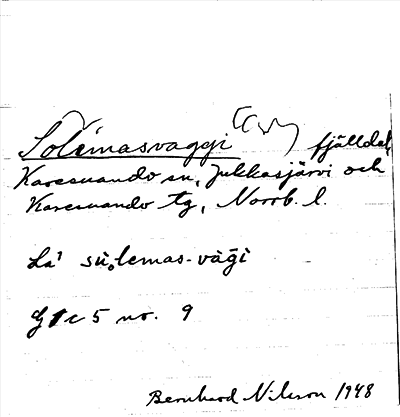 Solemasvaggi fjälldal,
Karesuando sn, Jukkasjärvi och
Karesuando tg, Norrb. l.
La' su̇ₒlemas-vǡgi
5 no. 9
Bernhard Nilsson 1948